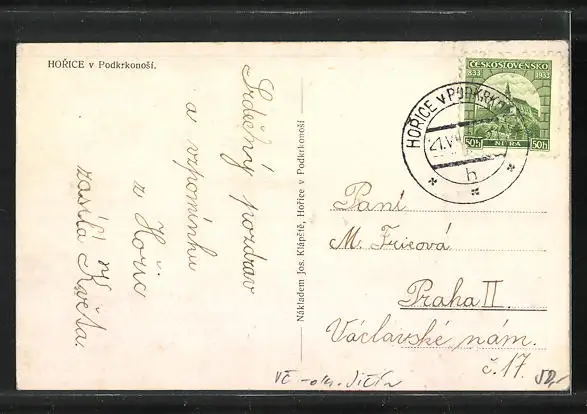 HOŘICE v Podkrkonoší.
Srdečný pozdrav
a vzpomínku
z Hořic
zasílá
Květa.
Nákladem Jos. Klápště, Hořice v Podkrkonoší
ČESKOSLOVENSKO
833 1933
50h NITRA 50h
HOŘICE V PODKRK
21.V
h
Paní
M. Fricová
Praha II.
Václavské nám.
č. 17.
VČ - okr. Jičín